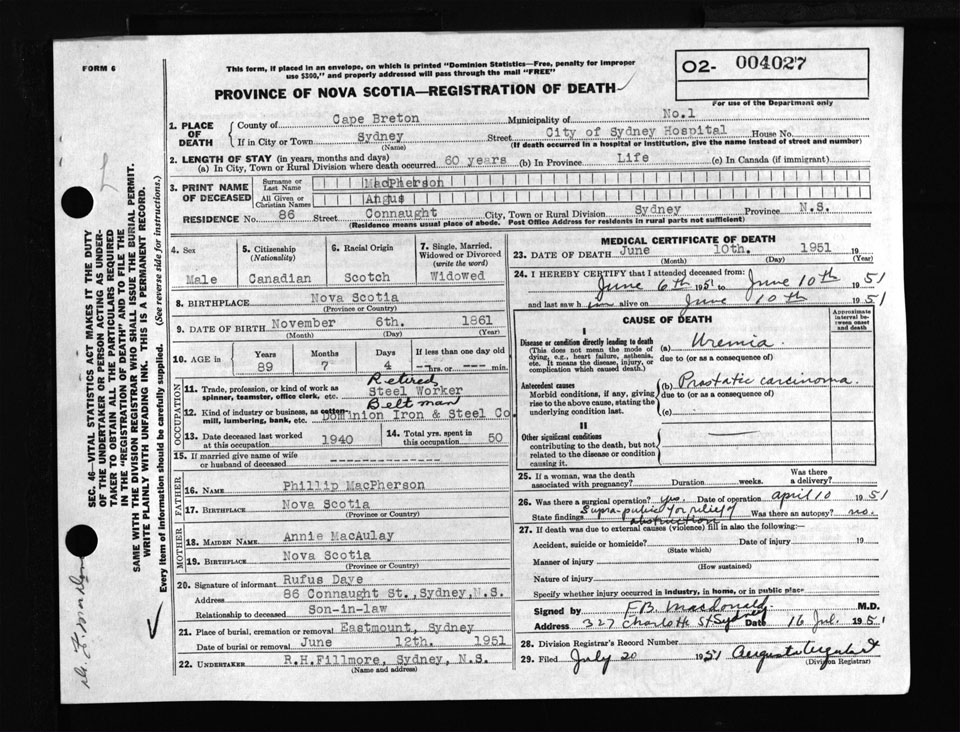 FORM 6
This form, if placed in an envelope, on which is printed "Dominion Statistics—Free, penalty for improper
use $300," and properly addressed will pass through the mail "FREE"
O2- 004027
PROVINCE OF NOVA SCOTIA—REGISTRATION OF DEATH
For use of the Department only
1. PLACE OF DEATH County of Cape Breton Municipality of No.1
If in City or Town Sydney (Name) Street City of Sydney Hospital House No.
(If death occurred in a hospital or institution, give the name instead of street and number)
2. LENGTH OF STAY (in years, months and days)
(a) In City, Town or Rural Division where death occurred 60 years (b) In Province Life (c) In Canada (if immigrant)
3. PRINT NAME OF DECEASED Surname or Last Name MacPherson
All Given or Christian Names Angus
RESIDENCE No. 86 Street Connaught City, Town or Rural Division Sydney Province N.S.
(Residence means usual place of abode. Post Office Address for residents in rural parts not sufficient)
4. Sex Male
5. Citizenship (Nationality) Canadian
6. Racial Origin Scotch
7. Single, Married, Widowed or Divorced (write the word) Widowed
8. BIRTHPLACE Nova Scotia
(Province or Country)
9. DATE OF BIRTH November 6th. 1861
(Month) (Day) (Year)
10. AGE in Years 89 Months 7 Days 4 If less than one day old --- hrs. or --- min.
OCCUPATION
Retired
11. Trade, profession, or kind of work as spinner, teamster, office clerk, etc. Steel Worker
Beltman
12. Kind of industry or business, as cotton-mill, lumbering, bank, etc. Dominion Iron & Steel Co.
13. Date deceased last worked at this occupation 1940
14. Total yrs. spent in this occupation 50
15. If married give name of wife or husband of deceased
FATHER
16. NAME Phillip MacPherson
17. BIRTHPLACE Nova Scotia
(Province or Country)
MOTHER
18. MAIDEN NAME Annie MacAulay
19. BIRTHPLACE Nova Scotia
(Province or Country)
20. Signature of informant Rufus Daye
Address 86 Connaught St., Sydney, N.S.
Relationship to deceased Son-in-law
21. Place of burial, cremation or removal Eastmount, Sydney
Date of burial or removal June 12th. 1951
22. UNDERTAKER R.H.Fillmore, Sydney, N.S.
(Name and address)
MEDICAL CERTIFICATE OF DEATH
23. DATE OF DEATH June 10th. 1951 19
(Month) (Day) (Year)
24. I HEREBY CERTIFY that I attended deceased from:
June 6th 1951 to June 10th 1951
and last saw him alive on June 10th 1951
CAUSE OF DEATH
Approximate interval between onset and death
I
Disease or condition directly leading to death
(This does not mean the mode of dying, e.g., heart failure, asthenia, etc. It means the disease, injury, or complication which caused death.)
(a) Uremia
due to (or as a consequence of)
Antecedent causes
Morbid conditions, if any, giving rise to the above cause, stating the underlying condition last.
(b) Prostatic carcinoma.
due to (or as a consequence of)
(c)
II
Other significant conditions
contributing to the death, but not related to the disease or condition causing it.
25. If a woman, was the death associated with pregnancy? Duration weeks. Was there a delivery?
26. Was there a surgical operation? yes. Date of operation April 10 1951
State findings Supra-pubic for relief of obstruction Was there an autopsy? no.
27. If death was due to external causes (violence) fill in also the following:—
Accident, suicide or homicide? Date of injury 19
(State which)
Manner of injury
(How sustained)
Nature of injury
Specify whether injury occurred in industry, in home, or in public place
Signed by F.B. MacDonald M.D.
Address 327 Charlotte St Sydney Date 16 Jul. 1951
28. Division Registrar's Record Number
29. Filed July 20 1951
(Division Registrar)
SEC. 46—VITAL STATISTICS ACT MAKES IT THE DUTY
OF THE UNDERTAKER OR PERSON ACTING AS UNDER-
TAKER TO OBTAIN ALL THE PARTICULARS REQUIRED
IN THE "REGISTRATION OF DEATH" AND TO FILE THE
SAME WITH THE DIVISION REGISTRAR WHO SHALL ISSUE THE BURIAL PERMIT.
WRITE PLAINLY WITH UNFADING INK. THIS IS A PERMANENT RECORD.
Every item of information should be carefully supplied. (See reverse side for instructions.)